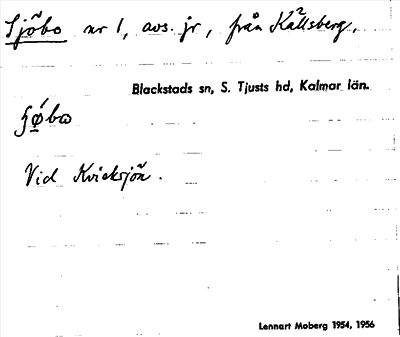 Sjöbo nr 1, avs. jr, från Källsberg.
Blackstads sn, S. Tjusts hd, Kalmar län.
Vid Kvicksjön.
Lennart Moberg 1954, 1956